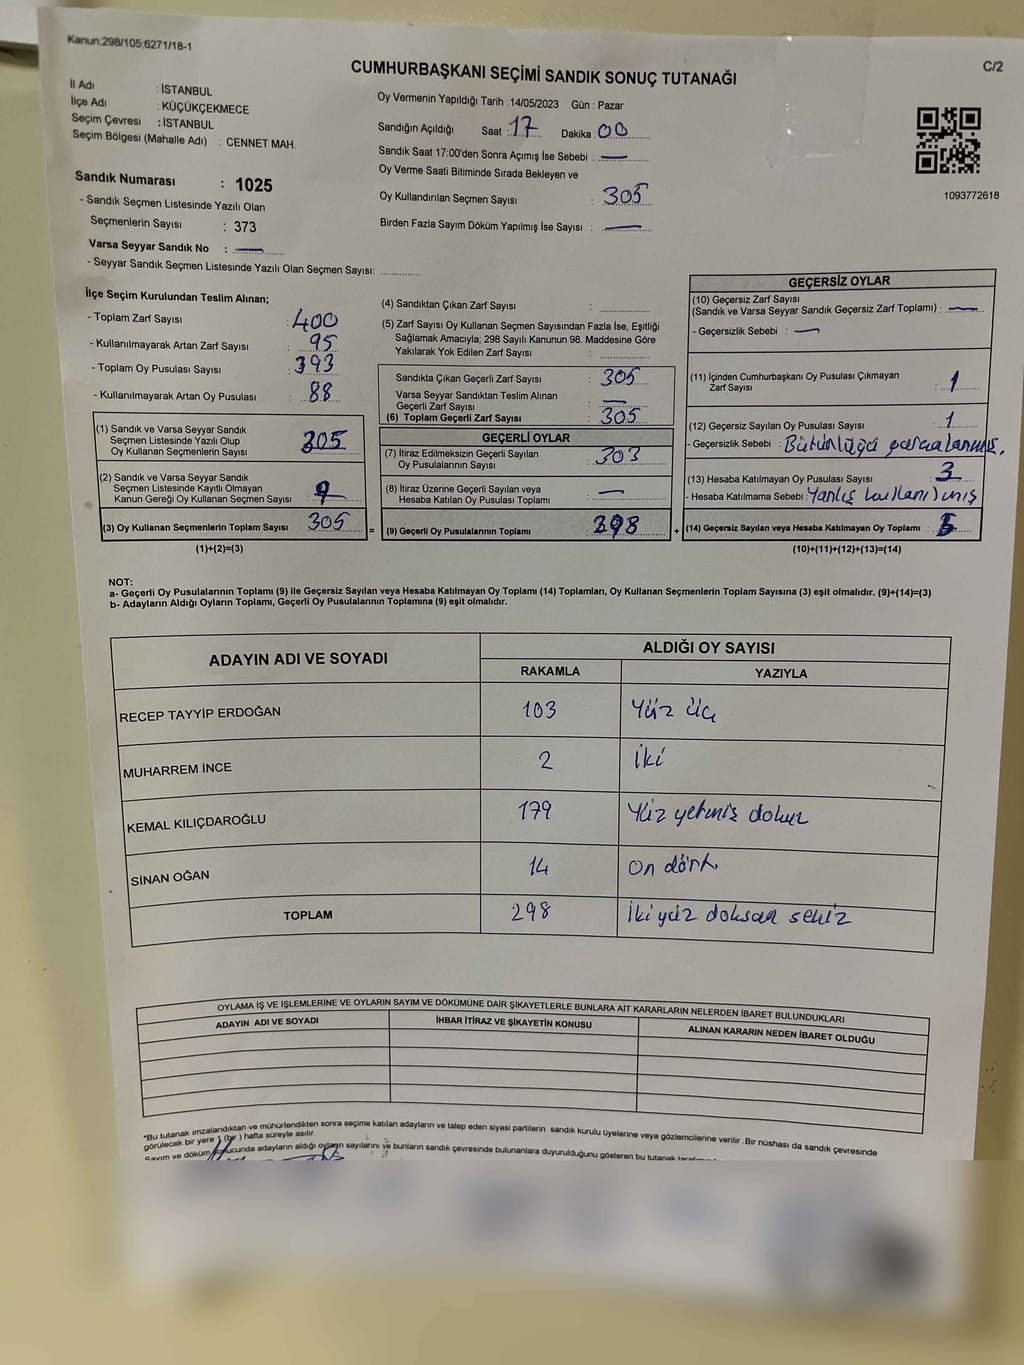 Kanun;298/105;6271/18-1
C/2
CUMHURBAŞKANI SEÇİMİ SANDIK SONUÇ TUTANAĞI
İl Adı : İSTANBUL
İlçe Adı : KÜÇÜKÇEKMECE
Seçim Çevresi : İSTANBUL
Seçim Bölgesi (Mahalle Adı) : CENNET MAH.
Oy Vermenin Yapıldığı Tarih :14/05/2023 Gün : Pazar
Sandığın Açıldığı Saat : 17 Dakika : 00
Sandık Saat 17:00'den Sonra Açımış İse Sebebi : —
Oy Verme Saati Bitiminde Sırada Bekleyen ve
Oy Kullandırılan Seçmen Sayısı : 305
Birden Fazla Sayım Döküm Yapılmış İse Sayısı : —
1093772618
Sandık Numarası : 1025
- Sandık Seçmen Listesinde Yazılı Olan
Seçmenlerin Sayısı : 373
Varsa Seyyar Sandık No : —
- Seyyar Sandık Seçmen Listesinde Yazılı Olan Seçmen Sayısı: ............
İlçe Seçim Kurulundan Teslim Alınan;
- Toplam Zarf Sayısı : 400
- Kullanılmayarak Artan Zarf Sayısı : 95
- Toplam Oy Pusulası Sayısı : 393
- Kullanılmayarak Artan Oy Pusulası : 88
(1) Sandık ve Varsa Seyyar Sandık
Seçmen Listesinde Yazılı Olup
Oy Kullanan Seçmenlerin Sayısı : 305
(2) Sandık ve Varsa Seyyar Sandık
Seçmen Listesinde Kayıtlı Olmayan
Kanun Gereği Oy Kullanan Seçmen Sayısı :
(3) Oy Kullanan Seçmenlerin Toplam Sayısı : 305 =
(1)+(2)=(3)
(4) Sandıktan Çıkan Zarf Sayısı : ............
(5) Zarf Sayısı Oy Kullanan Seçmen Sayısından Fazla İse, Eşitliği
Sağlamak Amacıyla; 298 Sayılı Kanunun 98. Maddesine Göre
Yakılarak Yok Edilen Zarf Sayısı : ............
Sandıkta Çıkan Geçerli Zarf Sayısı : 305
Varsa Seyyar Sandıktan Teslim Alınan
Geçerli Zarf Sayısı : —
(6) Toplam Geçerli Zarf Sayısı : 305
GEÇERLİ OYLAR
(7) İtiraz Edilmeksizin Geçerli Sayılan
Oy Pusulalarının Sayısı : 303
(8) İtiraz Üzerine Geçerli Sayılan veya
Hesaba Katılan Oy Pusulası Toplamı : —
(9) Geçerli Oy Pusulalarının Toplamı : 298 +
GEÇERSİZ OYLAR
(10) Geçersiz Zarf Sayısı
(Sandık ve Varsa Seyyar Sandık Geçersiz Zarf Toplamı) : —
- Geçersizlik Sebebi : —
(11) İçinden Cumhurbaşkanı Oy Pusulası Çıkmayan
Zarf Sayısı : 1
(12) Geçersiz Sayılan Oy Pusulası Sayısı : 1
- Geçersizlik Sebebi : Bütünlüğü parçalanmış.
(13) Hesaba Katılmayan Oy Pusulası Sayısı : 3
- Hesaba Katılmama Sebebi : Yanlış kullanılmış
(14) Geçersiz Sayılan veya Hesaba Katılmayan Oy Toplamı : 5
(10)+(11)+(12)+(13)=(14)
NOT:
a- Geçerli Oy Pusulalarının Toplamı (9) ile Geçersiz Sayılan veya Hesaba Katılmayan Oy Toplamı (14) Toplamları, Oy Kullanan Seçmenlerin Toplam Sayısına (3) eşit olmalıdır. (9)+(14)=(3)
b- Adayların Aldığı Oyların Toplamı, Geçerli Oy Pusulalarının Toplamına (9) eşit olmalıdır.
ADAYIN ADI VE SOYADI ALDIĞI OY SAYISI
RAKAMLA YAZIYLA
RECEP TAYYİP ERDOĞAN 103 Yüz üç
MUHARREM İNCE 2 İki
KEMAL KILIÇDAROĞLU 179 Yüz yetmiş dokuz
SİNAN OĞAN 14 On dört
TOPLAM 298 İki yüz doksan sekiz
OYLAMA İŞ VE İŞLEMLERİNE VE OYLARIN SAYIM VE DÖKÜMÜNE DAİR ŞİKAYETLERLE BUNLARA AİT KARARLARIN NELERDEN İBARET BULUNDUKLARI
ADAYIN ADI VE SOYADI İHBAR İTİRAZ VE ŞİKAYETİN KONUSU ALINAN KARARIN NEDEN İBARET OLDUĞU
*Bu tutanak imzalandıktan ve mühürlendikten sonra seçime katılan adayların ve talep eden siyasi partilerin sandık kurulu üyelerine veya gözlemcilerine verilir .Bir nüshası da sandık çevresinde
görülecek bir yere 1 (bir ) hafta süreyle asılır.
Sayım ve döküm sonucunda adayların aldığı oyların sayılarını ve bunların sandık çevresinde bulunanlara duyurulduğunu gösteren bu tutanak